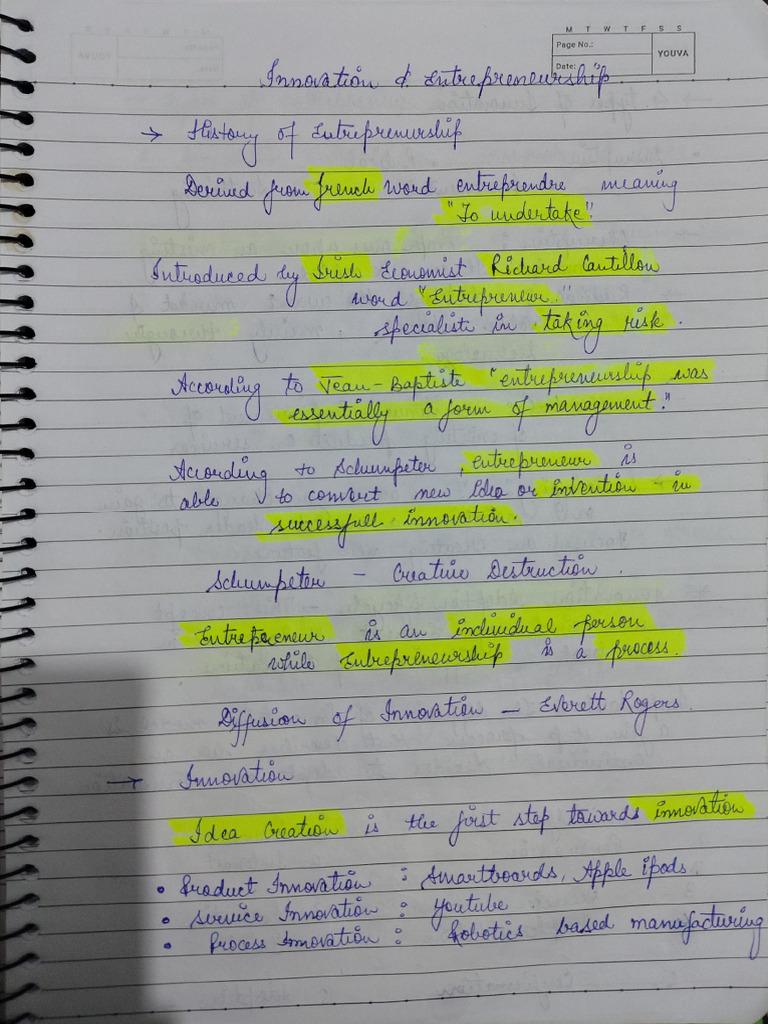 M T W T F S S
Page No.:
YOUVA
Date:
Innovation & Entrepreneurship
→ History of Entrepreneurship
Derived from french word entreprendre meaning
"To undertake".
Introduced by Irish Economist Richard Cantillon
word "Entrepreneur."
specialist in taking risk.
According to Jean-Baptiste "entrepreneurship was
essentially a form of management."
Acording to Schumpeter, entrepreneur is
able to convert new Idea or invention in
successfull innovation.
Schumpeter - Creative Destruction.
Entrepreneur is an individual person
while Entrepreneurship is a process.
Diffusion of Innovation - Everett Rogers.
→ Innovation
Idea Creation is the first step towards innovation
• Product Innovation : Smartboards, Apple ipods.
• Service Innovation : Youtube
• Process Innovation : Robotics based manufacturing